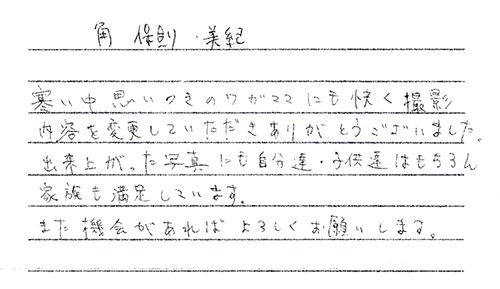 角 保則・美紀
寒い中思いつきのワガママにも快く撮影
内容を変更していただきありがとうございました。
出来上がった写真にも自分達・子供達はもちろん
家族も満足しています。
また機会があればよろしくお願いします。